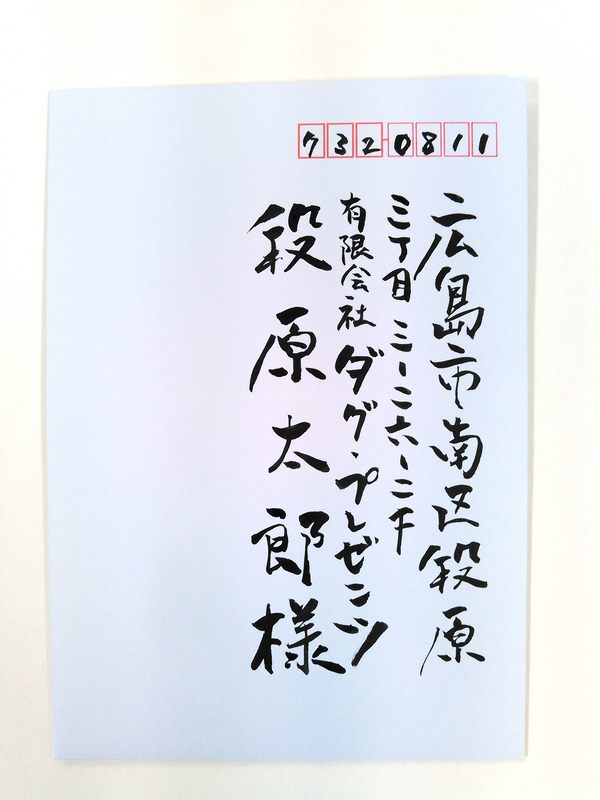 7320811
広島市南区段原
三丁目三-二六-二F
有限会社ダグ・プレゼンツ
段原太郎様